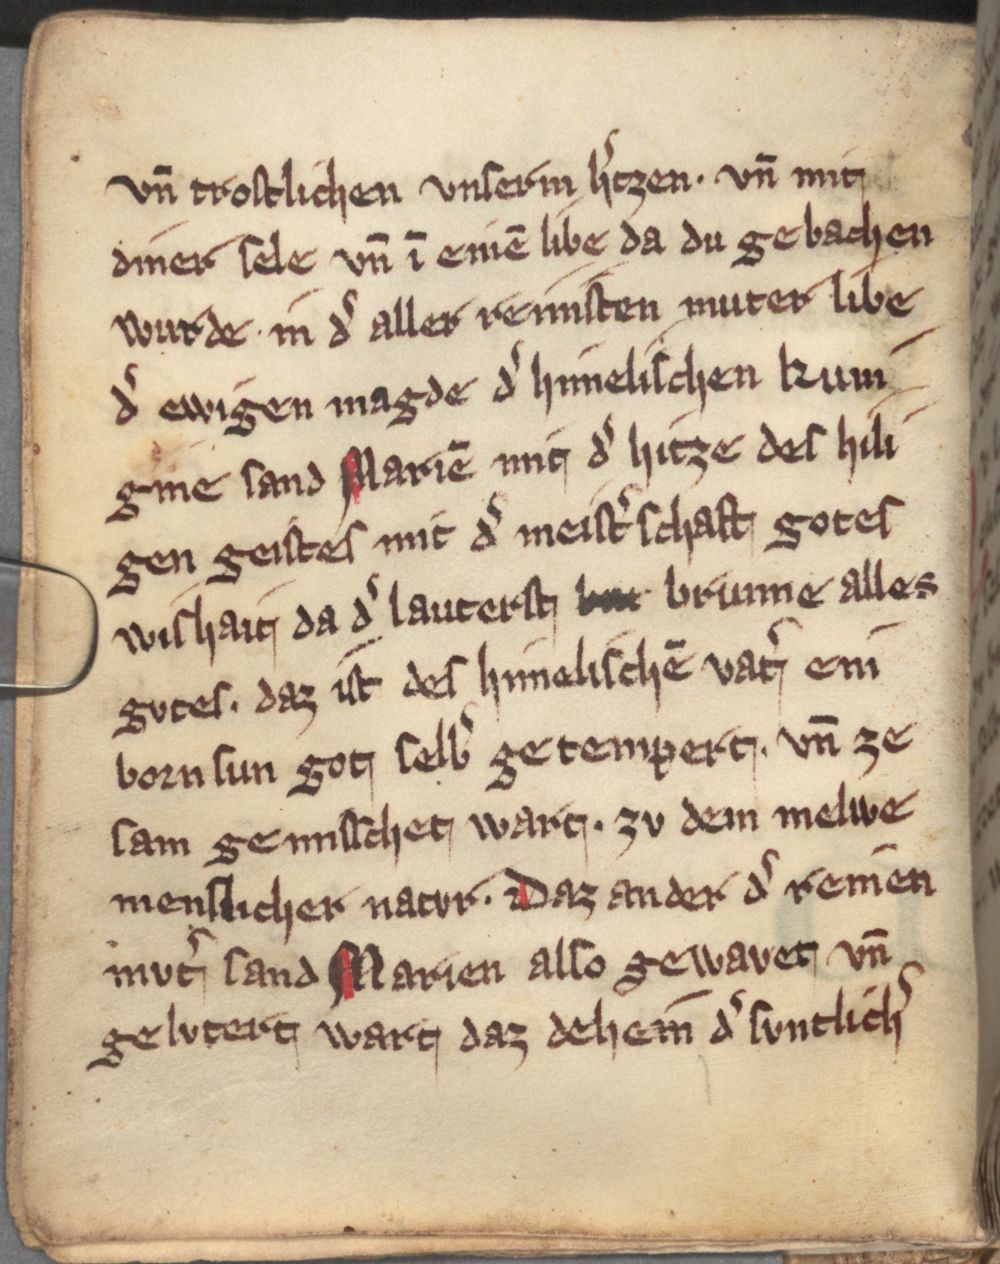 vn̄ trostlichen vnserm h'tzen. vn̄ mit
diner sele vn̄ ī einē libe da du gebachen
wurde. in d' aller reinisten muter libe
d' ewigen magde d' himelischen kuni
gine sand Mariē mit d' hitze des hili
gen geistes mit d' meist'schaft gotes
wishait da d' lauterst brunne alles
gvtes. daz ist des himelischē vat' ein
born sun got selb' getempert. vn̄ ze
sam gemisschet wart. zv dem melwe
menslicher natvr. Daz ander d' reinen
mvt' sand Marien also gewavet vn̄
gelvtert wart daz dehein d' svntlich'